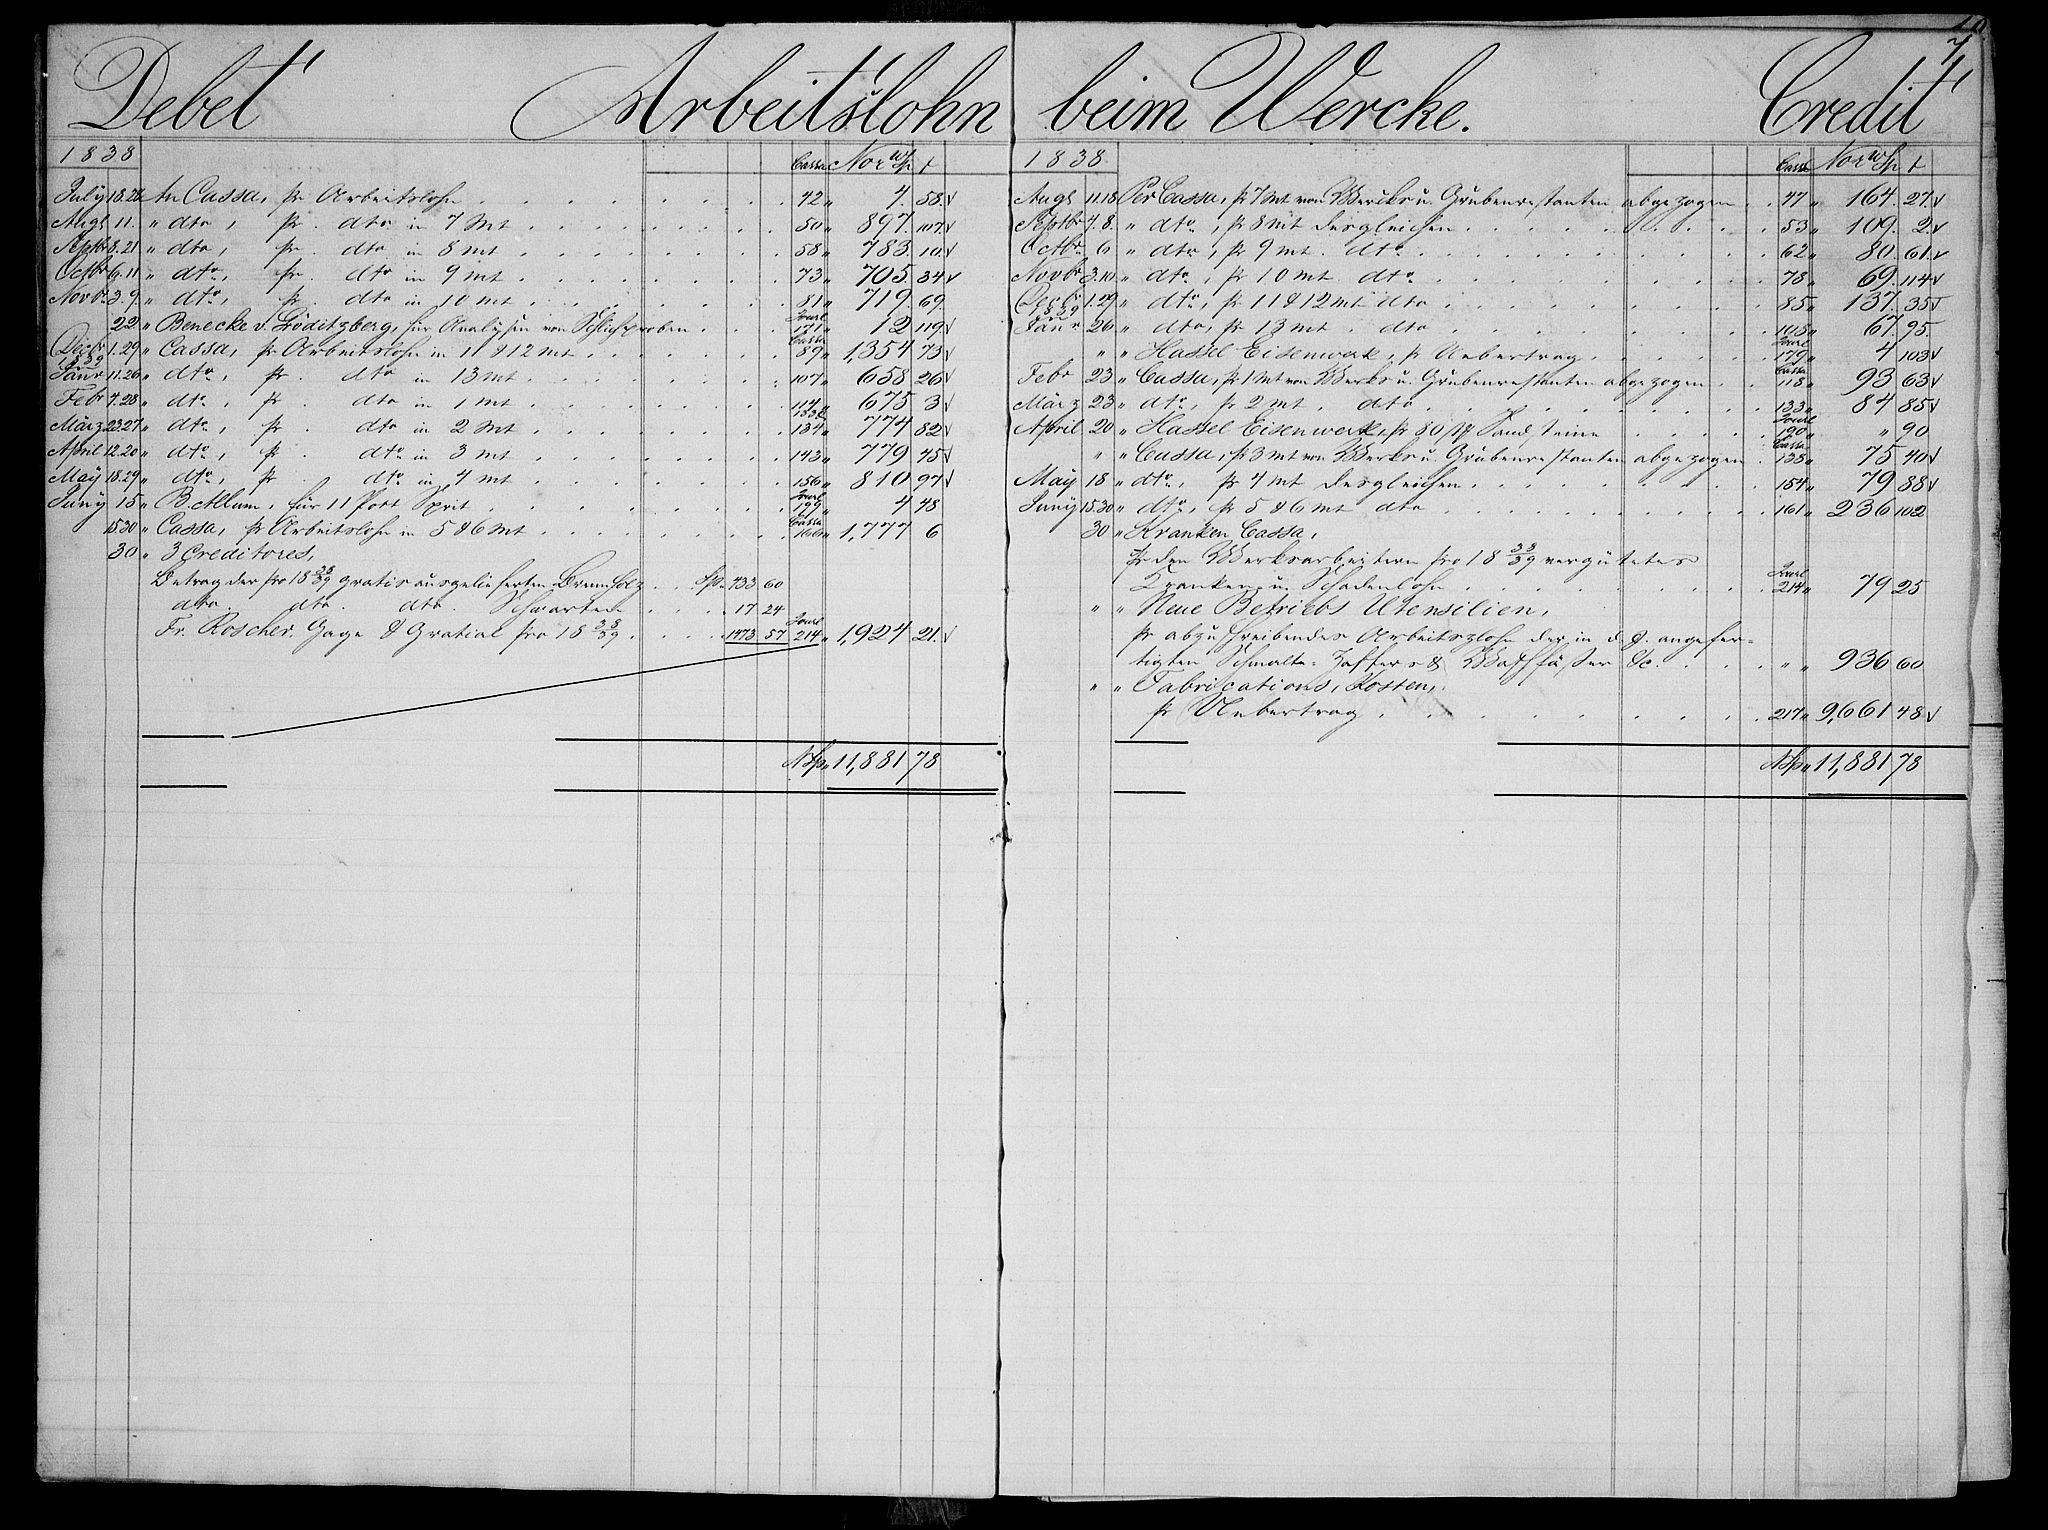 Debet Arbeitslohn
1838 Cassa Nor ω/sp t
July 18.28 An Cassa, pr Arbeitslohn 42 " 4. 58.
Augt 11. " dto, pr. dto in 7 Mt 50 " 897. 107.
Septbr 8.21 " dto, pr. dto in 8 mt 58 " 783. 10.
Octbr 6.11 " dto, pr. dto in 9 mt 73 " 705. 34
Novbr 3.9. " dto, pr. dto in 10 mt 81 " 719. 69.
22 " Benecke v. Gröditzberg, für Analysen von Schlichproben Jourl 171 " 12 119
Decbr 1.29 " Cassa, pr Arbeitslohn in 11 & 12 mt Cassa 89 " 1,354 73
1839
Janr 11.26 " dto, pr. dto in 13 mt 107 " 658 26
Febr 4.28 " dto, pr dto in 1 mt 114 " 675 3
März 23.27 " dto, pr. dto in 2 mt 134 " 774 82
April 12.20 " dto, pr dto in 3 mt 143 " 779 45
May 18.29 " dto, pr dto in 4 mt 156 " 810 97
Juny 15 " B. Allum, für 11 Pott Sprit Jourl 199 " 4 48
15.30 " Cassa, pr Arbeitslohn in 5 & 6 mt Cassa 166 " 1,777 6
30 " 3 Creditores,
Betrag der pro 18 38/39 gratis ausgelieferten Brennholz Sp. 433 60
dto. dto. dto. Schwarten 17 24
Fr. Roscher. Gage & Gratial pro 18 38/39 1473 57 Jourl 214 " 1,924 21.
NSp " 11,881 78
beim Wercke. Credit
1838 Cassa Nor ω/sp t
Augt 11.18 Per Cassa, pr 7 mt von Wercks u. Grubenrestanten abgezogen 47 " 164. 27.
Septbr 4.8. " dto, pr 8 mt desgleichen 53 " 109. 2.
Octbr 6 " dto, pr 9 mt. dto 62 " 80. 61.
Novbr 3.10 " dto, pr 10 mt dto 78 " 69. 114
Decbr 1.29 " dto, pr 11 & 12 mt dto 85 " 137. 35
1839
Janr 26 " dto, pr 13 mt. dto 105 " 67 95.
" " Hassel Eisenwerk, pr Uebertrag Jourl 179 " 4 103
Febr 23 " Cassa, pr 1 Mt von Werks u. Grubenrestanten abgezogen Cassa 118 " 93 63
März 23 " dto, pr 2 mt. dto 133 " 84 85
April 20 " Hassel Eisenwerk, pr 30 Sandsteine Jourl 190 " " 90
" " Cassa, pr 3 mt von Werks u. Grubenrestanten abgezogen Cassa 138 " 75 40
May 18 " dto, pr 4 mt desgleichen 154 " 79 88
Juny 15.30 " dto, pr 5 & 6 mt dto 161 " 236 102
30 " Kranken Cassa,
pr den Werksarbeitern pro 18 38/39 vergütetes
Kranken u. Schadenlohn Jourl 214 " 79 25
" " Neue Betriebs Utensilien,
pr abzuschreibendes Arbeitslohn der in d. J. angefer-
tigten Schmalte- Zaffer & Waschfässer &c. " " 936 60
" " Fabrications, Kosten,
pr Uebertrag 217 " 9,661 48
NSp " 11,881 78